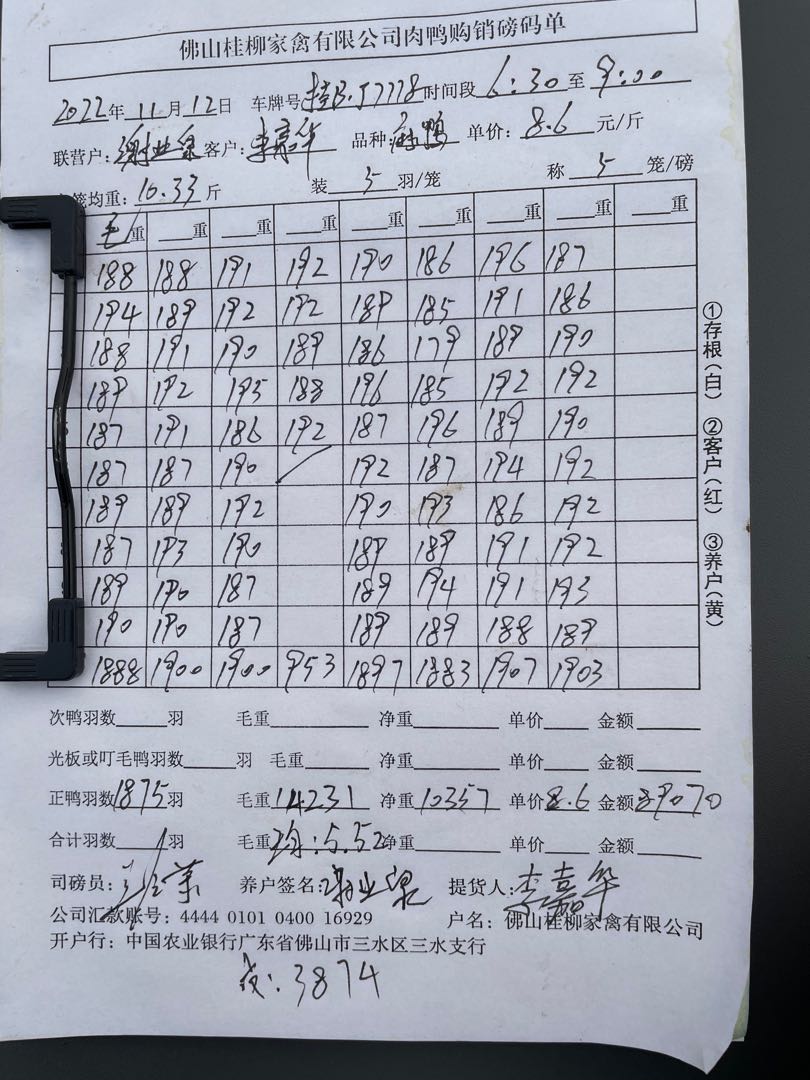 佛山桂柳家禽有限公司肉鸭购销磅码单
2022年 11月 12日 车牌号桂B·J7778时间段 6:30 至 9:00
联营户: 客户:李嘉华 品种: 鸭 单价: 8.6 元/斤
笼均重: 10.33 斤 装 5 羽/笼 称 5 笼/磅
毛重 重 重 重 重 重 重 重 重
188 188 191 192 190 186 196 187
194 189 192 192 189 185 191 186
188 191 190 189 186 179 189 190
189 192 195 188 196 185 192 192
187 191 186 192 187 196 189 190
187 187 190 192 187 194 192
189 189 192 190 193 186 192
187 193 190 189 189 191 192
189 190 187 189 194 191 193
190 190 187 189 189 188 189
1888 1900 1900 953 1897 1883 1907 1903
①存根(白) ②客户(红) ③养户(黄)
次鸭羽数 羽 毛重 净重 单价 金额
光板或叮毛鸭羽数 羽 毛重 净重 单价 金额
正鸭羽数1875羽 毛重 14231 净重 10357 单价 8.6 金额 89070
合计羽数 羽 毛重 均:5.52 净重 单价 金额
司磅员: 养户签名: 提货人:李嘉华
公司汇款账号: 4444 0101 0400 16929 户名: 佛山桂柳家禽有限公司
开户行: 中国农业银行广东省佛山市三水区三水支行
:3874